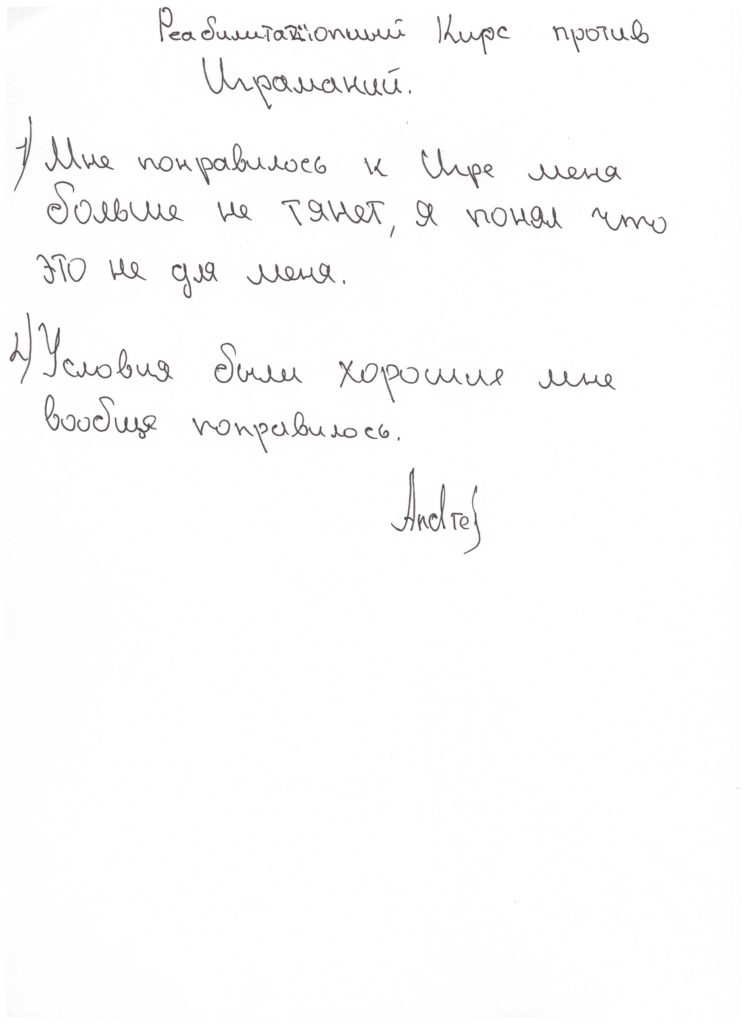 Реабилитационный Курс против
Играманий.
1) Мне понравилось к Игре меня
больше не тянет, я понял что
это не для меня.
2) Условия были хорошие мне
вообще понравилось.
Andrej